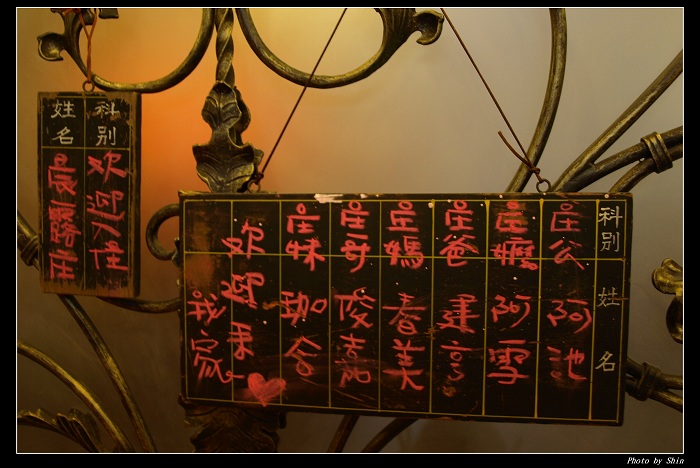 科別
姓名
欢迎入住
晨露庄
科別
姓名
庄公 阿池
庄嬤 阿雪
庄爸 建亨
庄媽 春美
庄哥 俊嘉
庄妹 珈合
欢迎來
我家
Photo by Shin